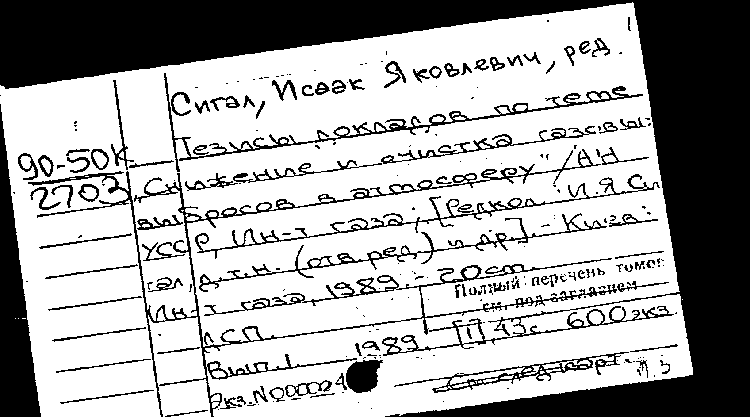 Сигал, Исаак Яковлевич, ред.
90-50К
2703
Тезисы докладов по теме
„Снижение и очистка газовы-
выбросов в атмосферу" / АН
УССР, Ин-т газа; [Редкол И.Я.Си
гал, д.т.н. (отв.ред.) и др.]. - Киев:
Ин-т газа, 1989. - 20 см.
Полный перечень томов
см. под заглавием
ДСП.
Вып.1. 1989. [1], 43 с. 600 экз
Экз.N000024
См. след. карт.